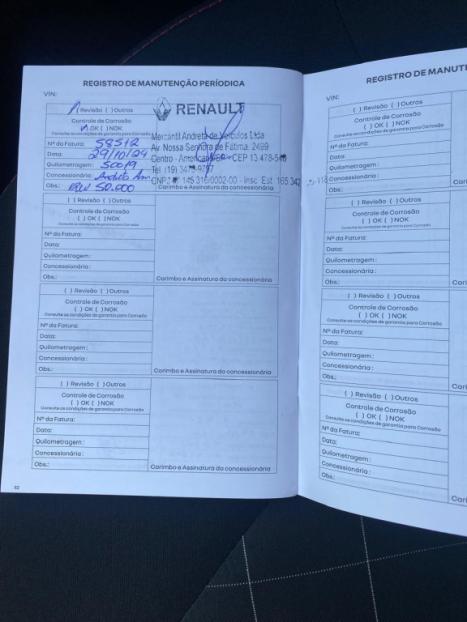 REGISTRO DE MANUTENÇÃO PERIÓDICA
VIN:
( ) Revisão ( ) Outros
Controle de Corrosão
( ) OK ( ) NOK
Consulte as condições de garantia para Corrosão
Nº da Fatura: 58512
Data: 29/10/24
Quilometragem: 50019
Concessionária: Andreta
Obs.: REV 50.000
RENAULT
Mercantil Andreta de Veículos Ltda
Av. Nossa Senhora de Fátima, 2499
Centro - Americana/SP - CEP 13.478-540
Tel (19)
Carimbo e Assinatura da concessionária
( ) Revisão ( ) Outros
Controle de Corrosão
( ) OK ( ) NOK
Consulte as condições de garantia para Corrosão
Nº da Fatura:
Data:
Quilometragem:
Concessionária:
Obs.:
Carimbo e Assinatura da concessionária
( ) Revisão ( ) Outros
Controle de Corrosão
( ) OK ( ) NOK
Consulte as condições de garantia para Corrosão
Nº da Fatura:
Data:
Quilometragem:
Concessionária:
Obs.:
Carimbo e Assinatura da concessionária
( ) Revisão ( ) Outros
Controle de Corrosão
( ) OK ( ) NOK
Consulte as condições de garantia para Corrosão
Nº da Fatura:
Data:
Quilometragem:
Concessionária:
Obs.:
Carimbo e Assinatura da concessionária
REGISTRO DE MANUT
VIN:
( ) Revisão ( ) Outros
Controle de Corrosão
( ) OK ( ) NOK
Consulte as condições de garantia para Corrosão
Nº da Fatura:
Data:
Quilometragem:
Concessionária:
Obs.:
( ) Revisão ( ) Outros
Controle de Corrosão
( ) OK ( ) NOK
Consulte as condições de garantia para Corrosão
Nº da Fatura:
Data:
Quilometragem:
Concessionária:
Obs.:
( ) Revisão ( ) Outros
Controle de Corrosão
( ) OK ( ) NOK
Consulte as condições de garantia para Corrosão
Nº da Fatura:
Data:
Quilometragem:
Concessionária:
Obs.:
( ) Revisão ( ) Outros
Controle de Corrosão
( ) OK ( ) NOK
Consulte as condições de garantia para Corrosão
Nº da Fatura:
Data:
Quilometragem:
Concessionária:
Obs.: